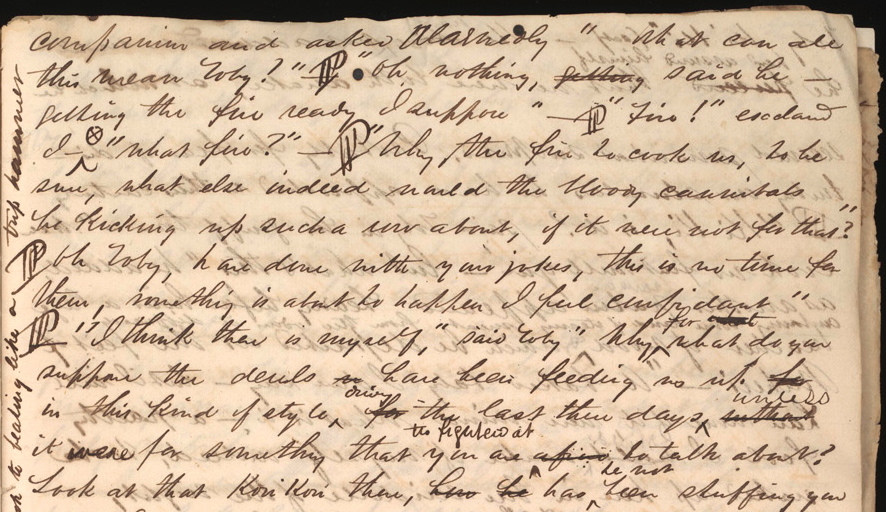 companion and asked alarmedly "what can all
this mean Toby?" "Oh, nothing, getting said he —
getting the fire ready I suppose" — "Fire!" esclamd
I — ⊗ "what fire?" — "Why, the fire to cook us, to be
sure, what else indeed would the bloody cannibals
be kicking up such a row about, if it were not for that?"
Oh Toby, have done with your jokes, this is no time for
them, something is about to happen I feel confidant"
"I think there is myself," said Toby" Why, for what do you
suppose the devels have been feeding us up
in this kind of style, during for the last three days, unless without
it were for something that you are to frightend at afraid to talk about?
Look at that Kori Kori there, how he has he not been stuffing you
to beating like a trip hammer